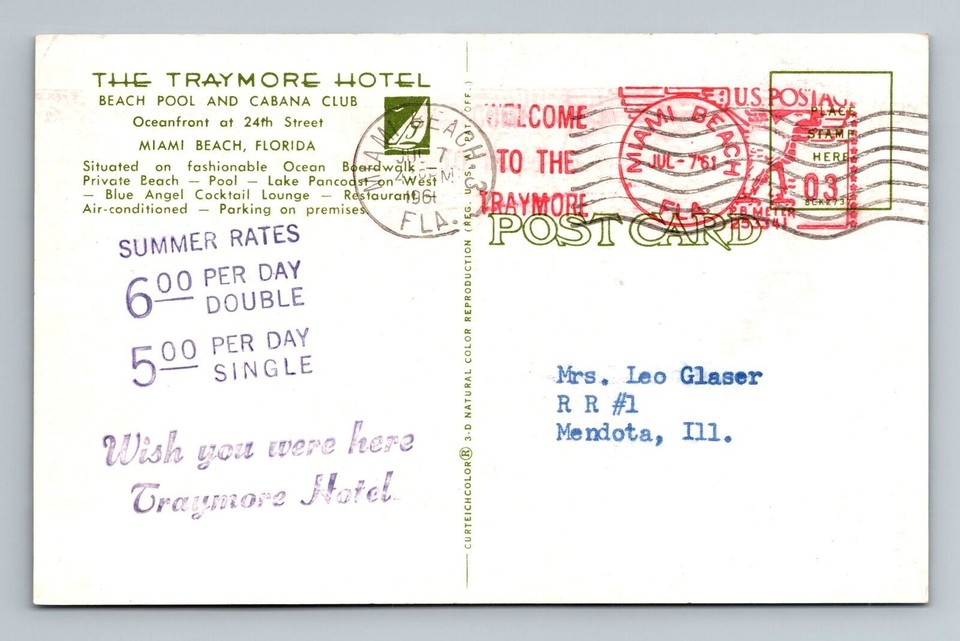 THE TRAYMORE HOTEL
BEACH POOL AND CABANA CLUB
Oceanfront at 24th Street
MIAMI BEACH, FLORIDA
Situated on fashionable Ocean Boardwalk —
Private Beach — Pool — Lake Pancoast on West
— Blue Angel Cocktail Lounge — Restaurant
Air-conditioned — Parking on premises
SUMMER RATES
6 00 PER DAY
DOUBLE
5 00 PER DAY
SINGLE
Wish you were here
Traymore Hotel
MIAMI BEACH
JUL 7
PM
1961
FLA.
CURTEICHCOLOR® 3-D NATURAL COLOR REPRODUCTION (REG. U.S. PAT. OFF.)
WELCOME
TO THE
TRAYMORE
MIAMI BEACH
JUL-7'61
FLA
U.S. POSTAGE
03
P.B. METER
PLACE
STAMP
HERE
POST CARD
Mrs. Leo Glaser
R R #1
Mendota, Ill.